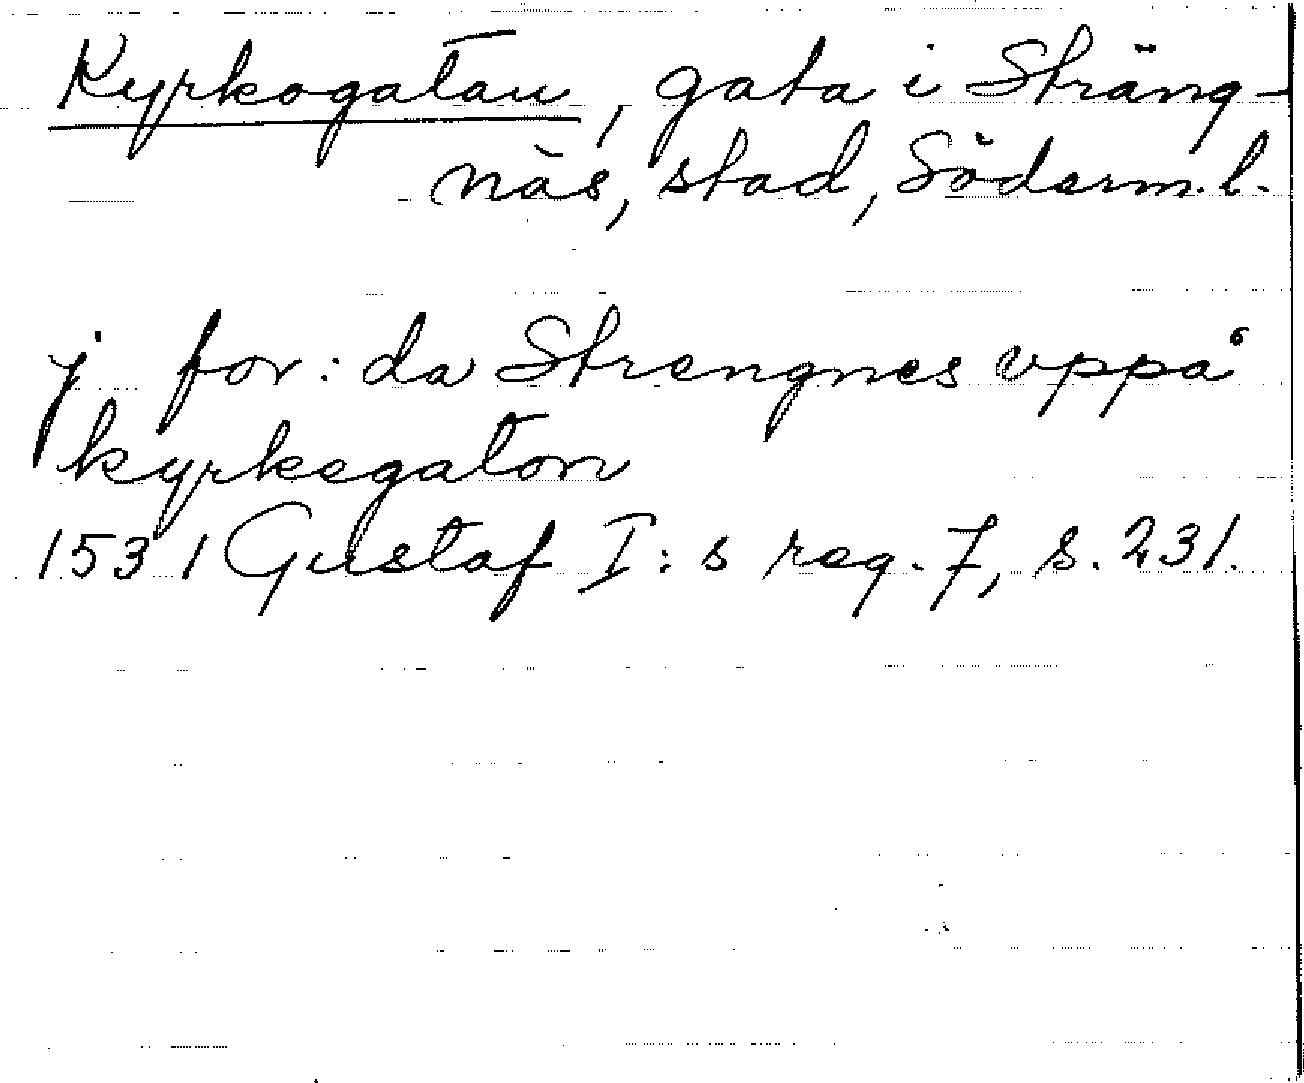 Kyrkogatan, gata i Sträng-
näs, stad, Söderm.l.
j for:da Strengnes vppå
kyrkegaton
1531 Gustaf I:s reg. 7, s. 231.